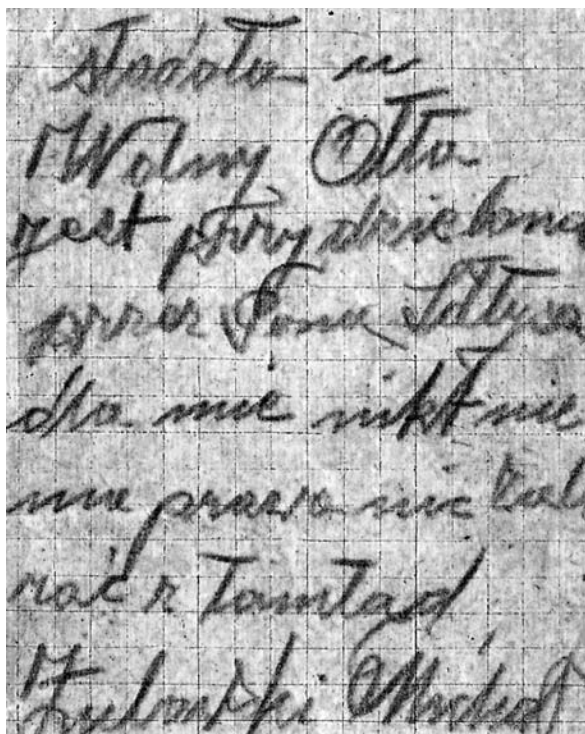 stodoła u
Wolny Otta
jest przydzielona
przez Pana Sołtysa
dla mie nikt nie
ma prawa nic
rać z tamtąd
Michał